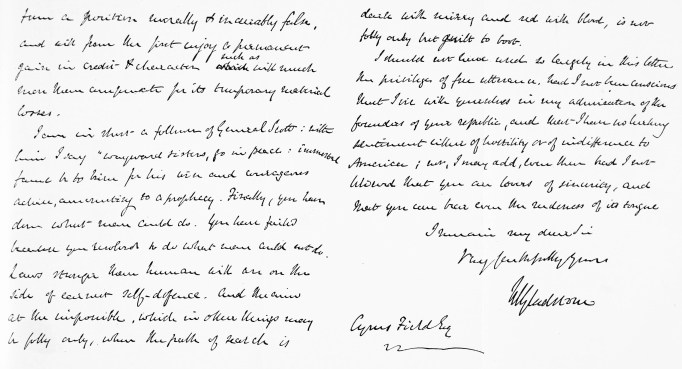 from a position morally & incurably false,
and will from the first enjoy a permanent
gain in credit & character such as
which will much
more than compensate for its temporary material
losses.
I am in short a follower of General Scott: with
him I say "wayward sisters, go in peace: immortal
fame be to him for his wise and courageous
advice, amounting to a prophecy. Finally, you have
done what men could do. You have failed
because you resolved to do what men could not do.
Laws stronger than human will are on the
side of earnest self-defence. And the aim
at the impossible, which in other things may
be folly only, when the path of search is
dark with misery and red with blood, is not
folly only but guilt to boot.
I should not have used so largely in this letter
the privilege of free utterance, had I not been conscious
that I vie with yourselves in my admiration of the
founders of your republic, and that I have no lurking
sentiment either of hostility or of indifference to
America; nor, I may add, even then had I not
believed that you are lovers of sincerity, and
that you can bear even the rudeness of its tongue
I remain my dear Sir
Very faithfully yours
WEGladstone
Cyrus Field Esq